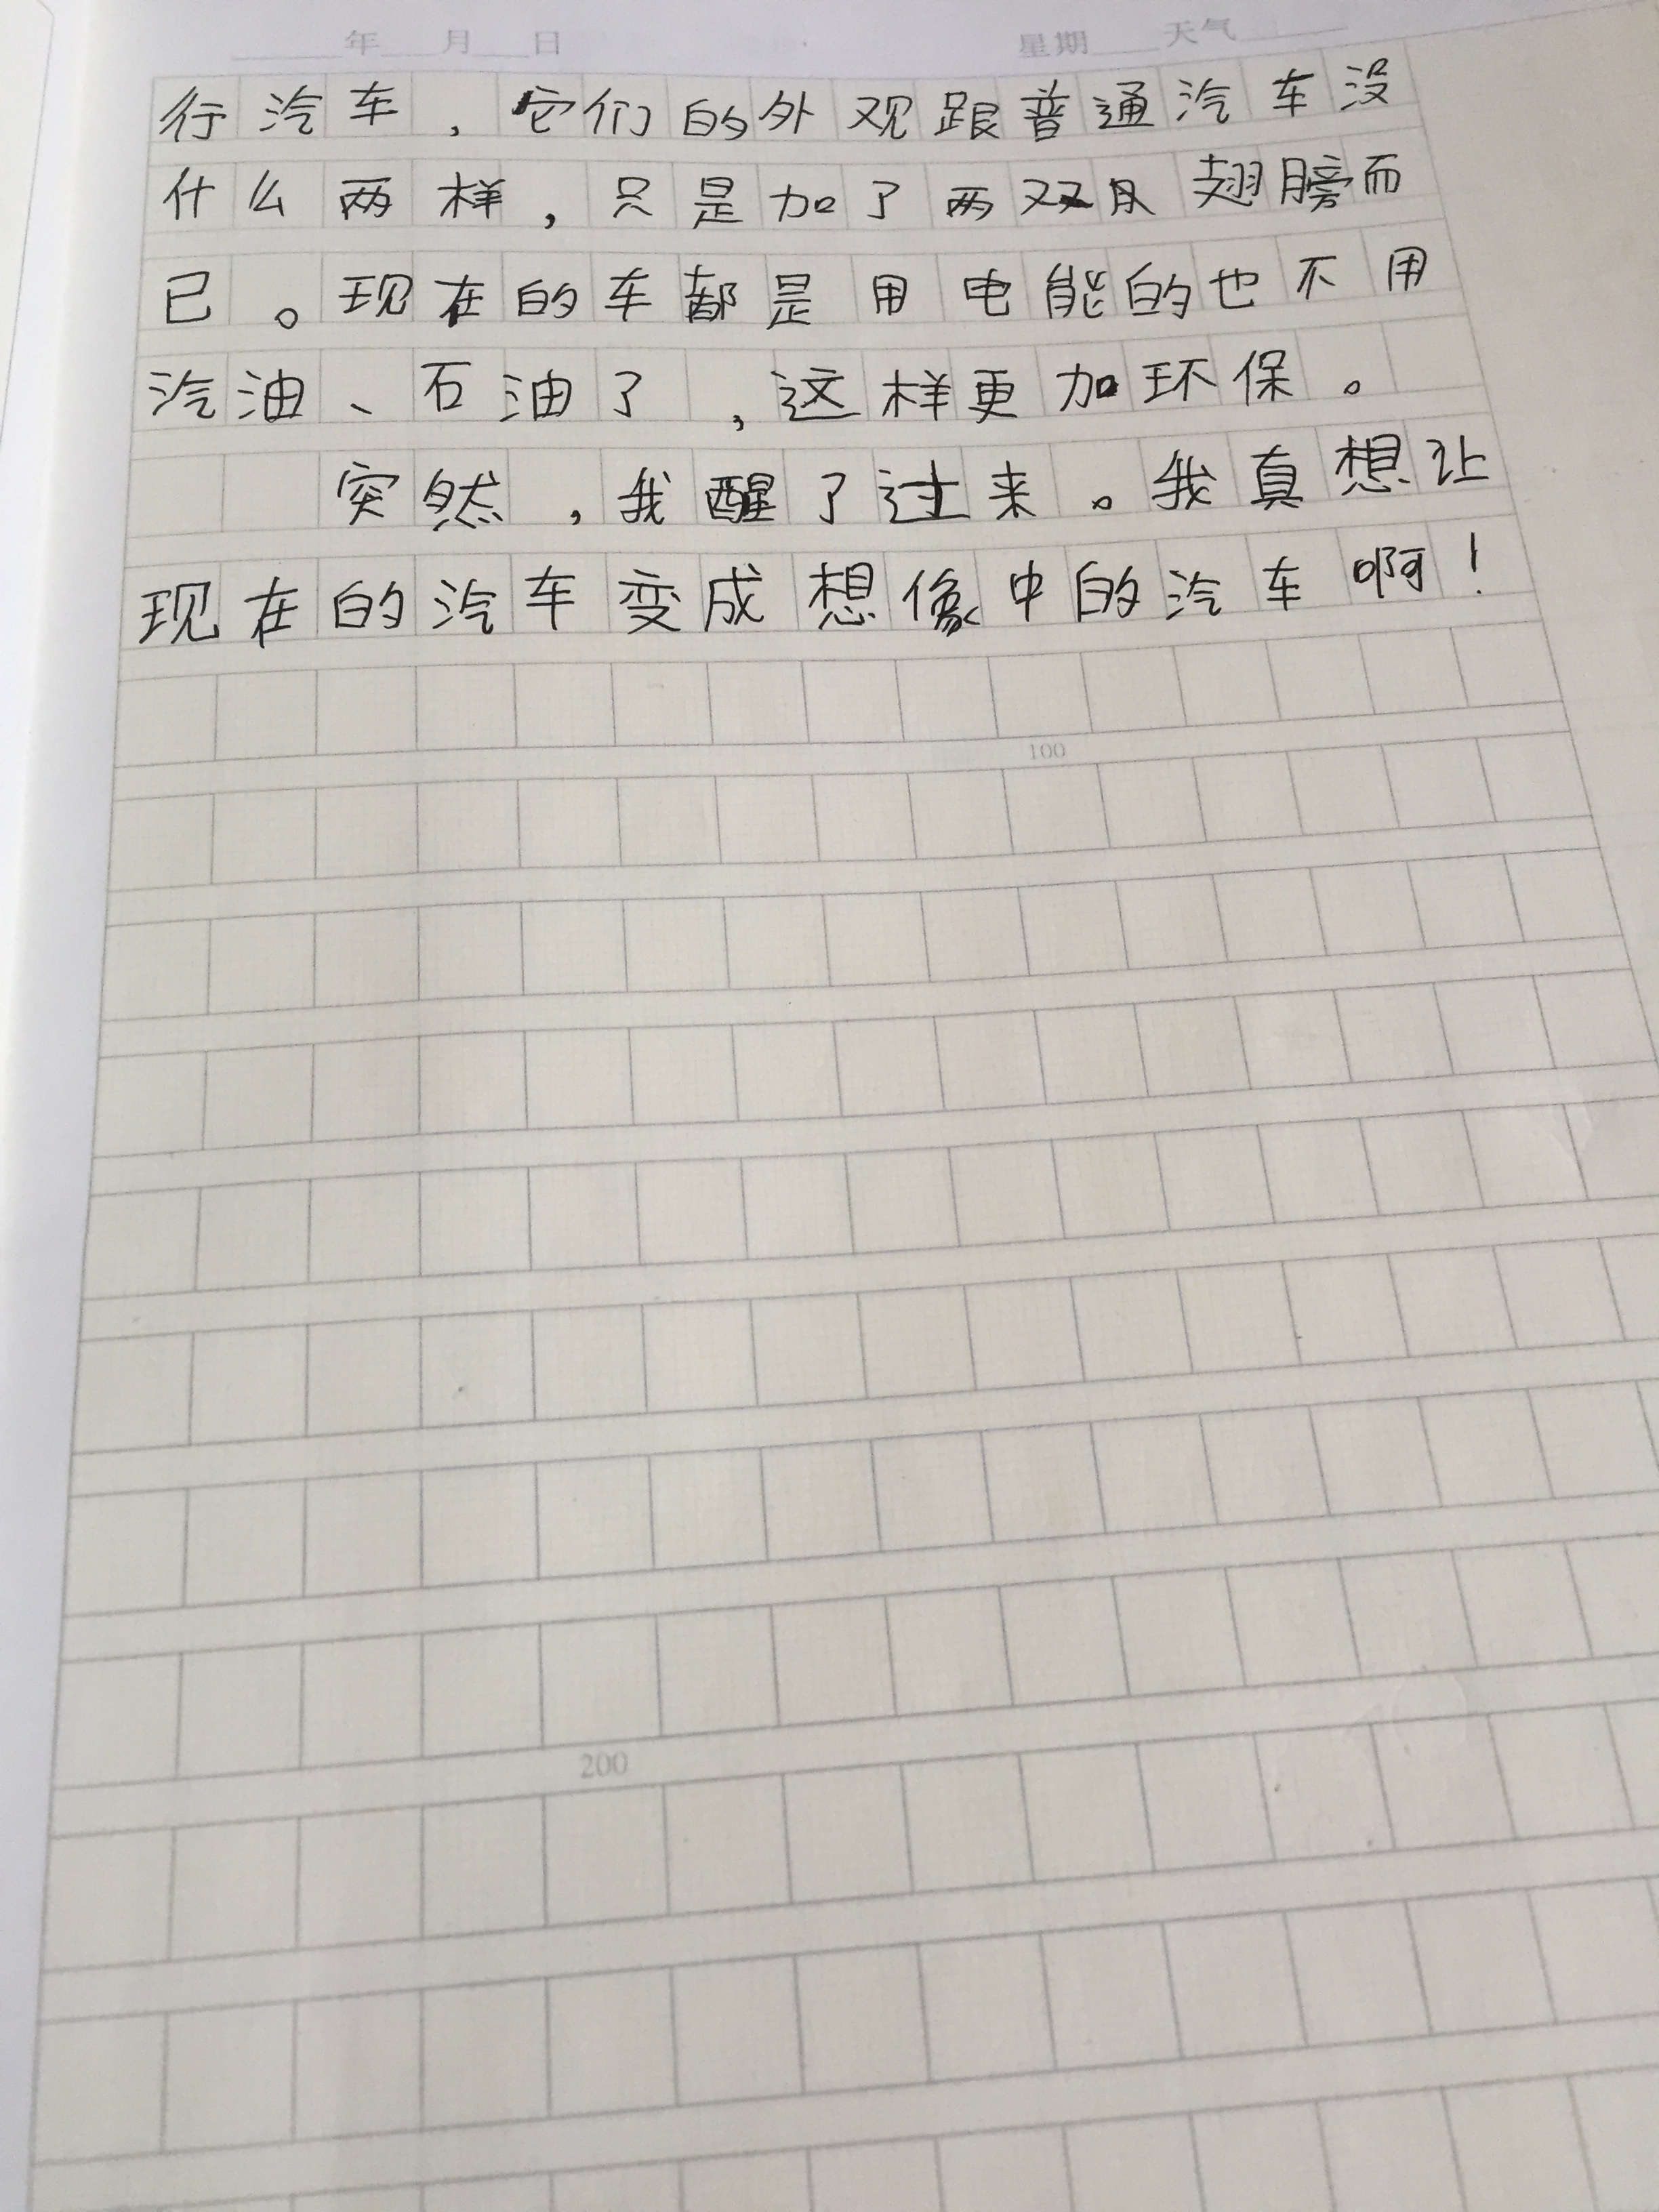 年 月 日 星期 天气
行汽车，它们的外观跟普通汽车没
什么两样，只是加了两双翅膀而
已。现在的车都是用电能的也不用
汽油、石油了，这样更加环保。
突然，我醒了过来。我真想让
现在的汽车变成想像中的汽车啊！
100
200